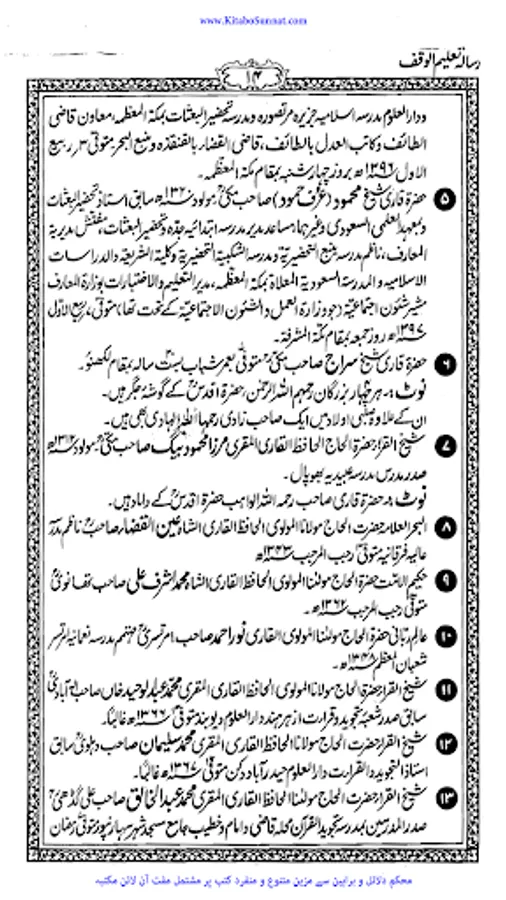 www.KitaboSunnat.com
رسالہ تعلیم الوقف
۱۴
ودارالعلوم مدرسہ اسلامیہ جزیرہ مرتصورہ ومدرسہ تحضیر البعثات بمکۃ المعظمہ، معاون قاضی
الطائف وکاتب العدل بالطائف، قاضی القضار بالقنفذہ وینبع البحر متوفی ۳ ربیع
الاول ۱۳۹۶ھ بروز چہارشنبہ بمقام مکۃ المعظمہ۔
۵ حضرۃ قاری شیخ محمود (عرف حمود) صاحب مکیؒ مولود سابق استاذ تحضیر البعثات
ومعہد العلمی السعودی وغیرہما مساعد مدیر مدرسہ ابتدائیہ جدہ وتحضیر البعثات، مفتش مدیریۃ
المعارف، ناظم مدرسہ ینبع التحضیریۃ ومدرسہ الشکبیۃ التحضیریۃ وکلیۃ الشریعۃ والدراسات
الاسلامیہ والمدرسہ السعودیۃ المعلاۃ بمکۃ المعظمہ، مدیر التعلیم والاختبارات بوزارۃ المعارف
مشیر شئون اجتماعیۃ (جو وزارۃ العمل والشئون الاجتماعیۃ کے تحت تھا) متوفی ربیع الاول
۱۳۹۷ھ روز جمعہ بمقام مکۃ المشرفۃ۔
۶ حضرۃ قاری شیخ سراج صاحب مکیؒ متوفی بعمر شباب بست سالہ بمقام لکھنؤ۔
نوٹ :- ہر چہار بزرگان رحمہم اللہ الرحمٰن، حضرۃ اقدسؒ کے گوشۂ جگر ہیں۔
ان کے علاوہ صلبی اولاد میں ایک صاحب زادی رحمہا اللہ الہادی بھی ہیں۔
۷ شیخ القراء حضرۃ الحاج الحافظ القاری المقری مرزا محمود بیگ صاحب مکیؒ مولود
صدر مدرس مدرسہ عبیدیہ بھوپال۔
نوٹ :- حضرۃ قاری صاحب رحمہ اللہ الواہب حضرۃ اقدسؒ کے داماد ہیں۔
۸ البحر العلامہ حضرت الحاج مولانا المولوی الحافظ القاری الشاہ عین القضاۃ صاحبؒ ناظم مدرسہ
عالیہ فرقانیہ متوفی رجب المرجب ۱۳۴۳ھ
۹ حکیم الامت حضرۃ الحاج مولٰنا المولوی الحافظ القاری الشاہ محمد اشرف علی صاحب تھانویؒ
متوفی رجب المرجب ۱۳۶۲ھ۔
۱۰ عالم ربانی حضرۃ الحاج مولٰنا المولوی القاری نور احمد صاحب، امرتسریؒ مہتمم مدرسہ نعمانیہ امرتسر
شعبان المعظم ۱۳۴۸ھ۔
۱۱ شیخ القراء حضرۃ الحاج مولانا المولوی الحافظ القاری المقری محمد عبدالوحید خاں صاحب الٰہ آبادیؒ
سابق صدر شعبۂ تجوید وقرارت از ہر ہند دارالعلوم دیوبند متوفی ۱۳۶۷ھ غالباً۔
۱۲ شیخ القراء حضرت الحاج مولانا الحافظ القاری المقری محمد سلیمان صاحب دہلویؒ سابق
استاذ التجوید والقرارت دارالعلوم حیدرآباد دکن متوفی ۱۳۶۷ھ غالباً۔
۱۳ شیخ القراء حضرت الحاج مولٰنا الحافظ القاری المقری محمد عبدالخالق صاحب علی گڈھیؒ
صدر المدرسین بمدرسہ تجوید القرآن محلہ قاضی وامام وخطیب جامع مسجد شہر سہارنپور متوفی رمضان
محکم دلائل و براہین سے مزین متنوع و منفرد کتب پر مشتمل مفت آن لائن مکتبہ